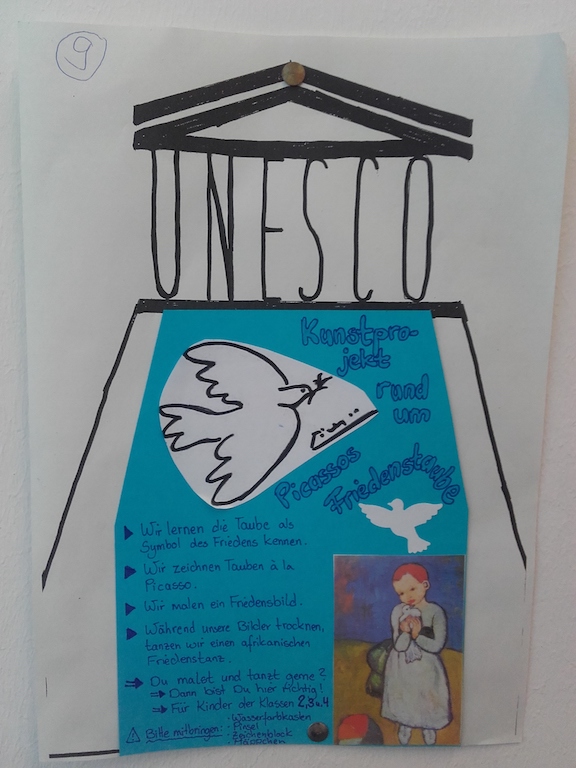 9
UNESCO
Kunstpro-
jekt
rund
um
Picassos
Friedenstaube
Wir lernen die Taube als
Symbol des Friedens kennen.
Wir zeichnen Tauben à la
Picasso.
Wir malen ein Friedensbild.
Während unsere Bilder trocknen,
tanzen wir einen afrikanischen
Friedenstanz.
⇒ Du malst und tanzt gerne?
⇒ Dann bist Du hier richtig!
⇒ Für Kinder der Klassen 2,3u.4
Bitte mitbringen: · Wasserfarbkasten
· Pinsel
· Zeichenblock
· Läppchen